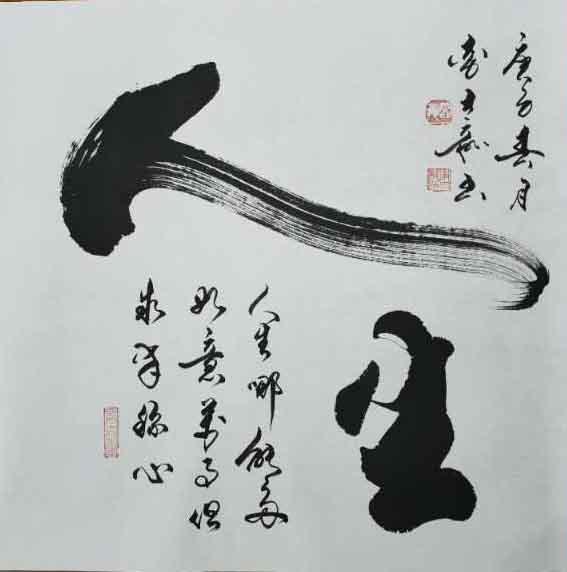 人生
人生哪能多
如意萬事但
求半稱心
庚子春月
书